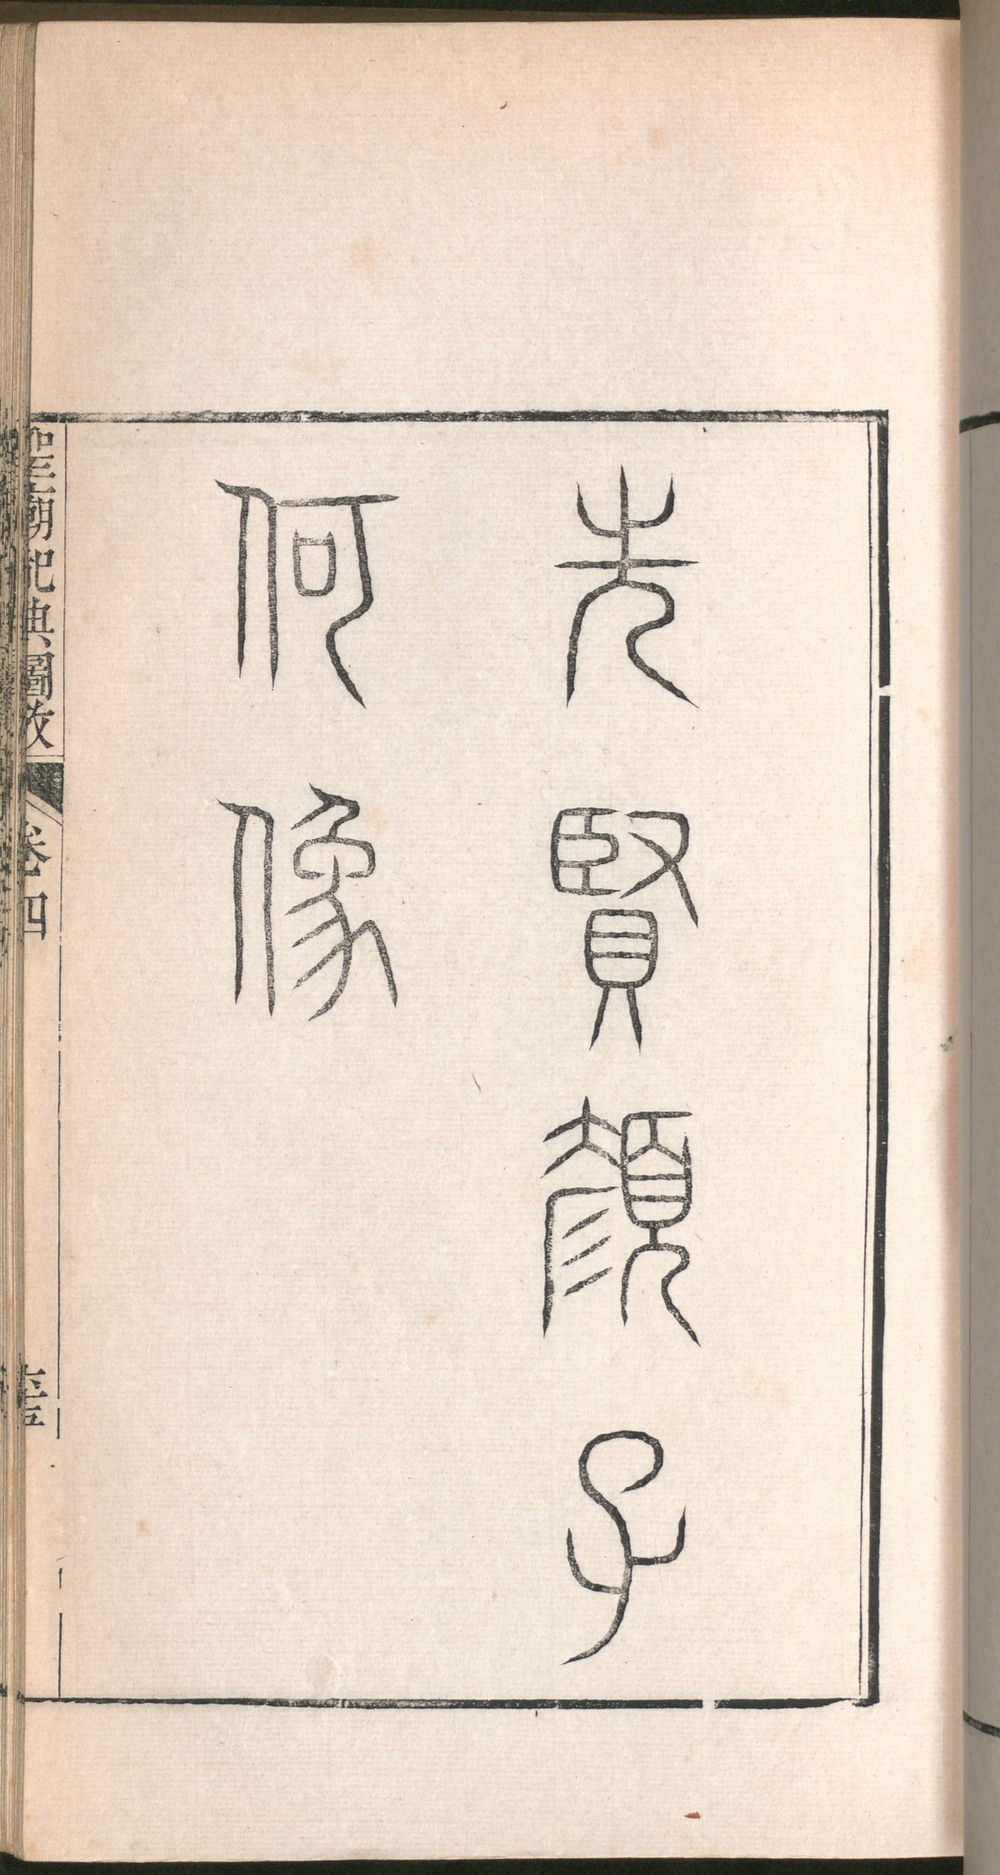 先賢顏子
何像
聖廟祀典圖攷
卷四